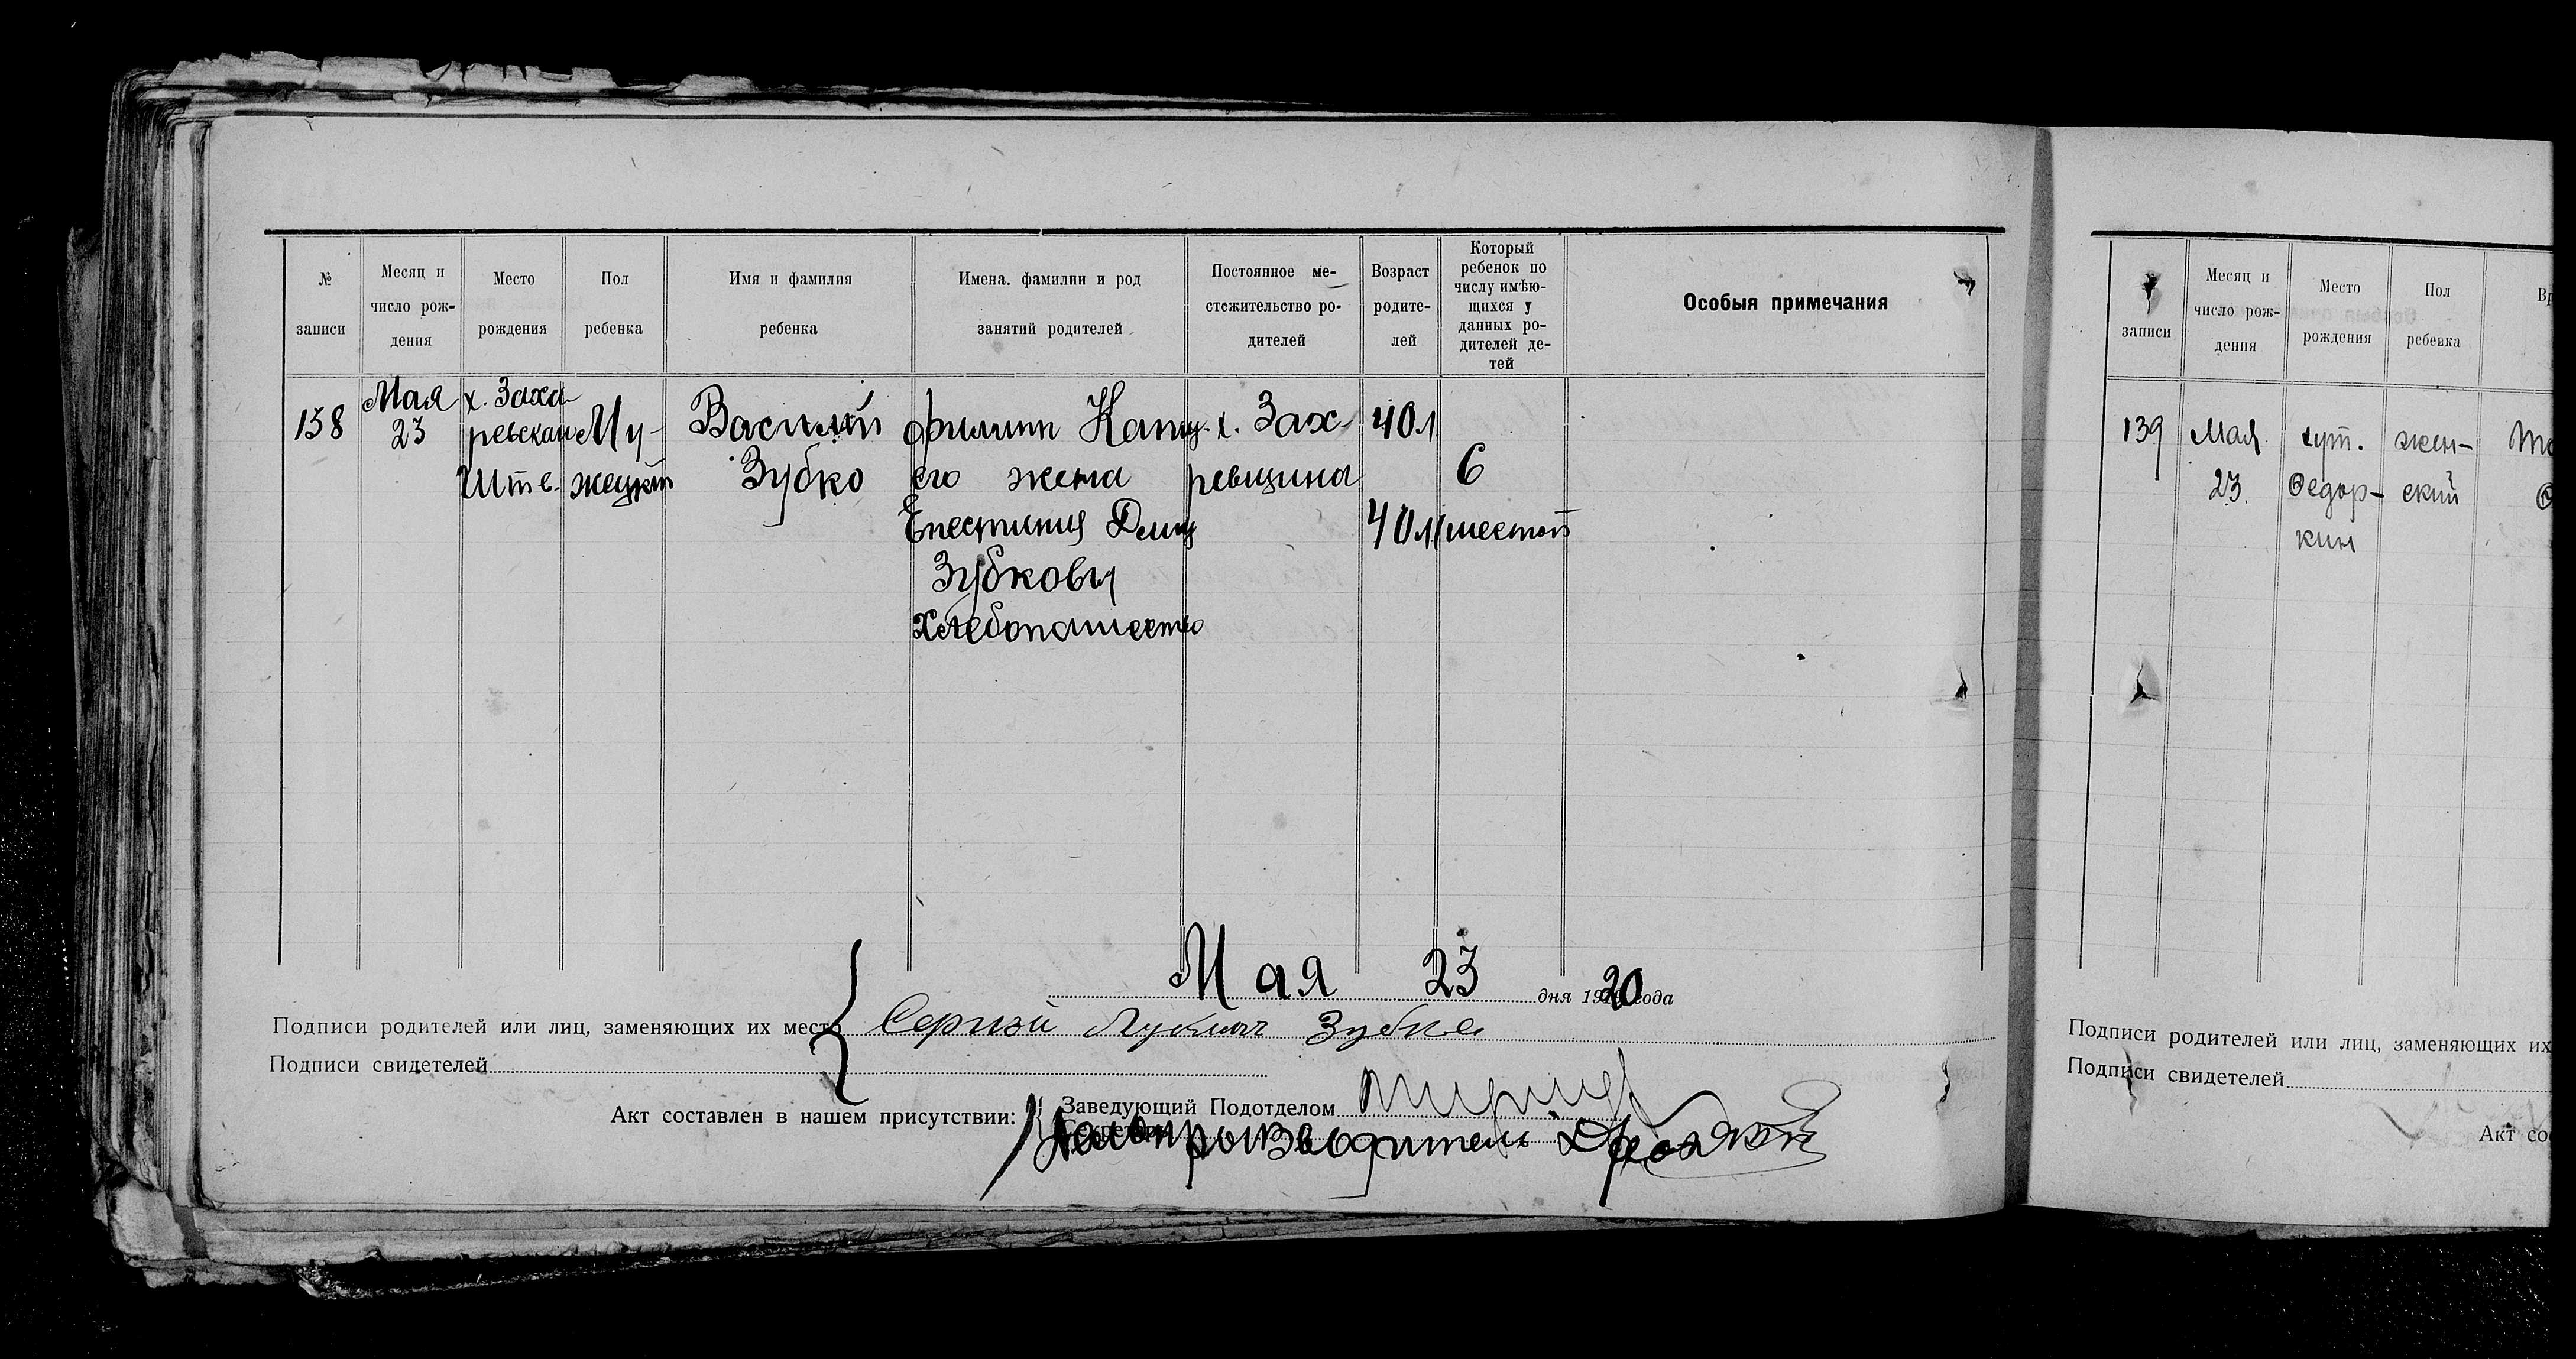 № записи
Месяц и число рож-дения
Место рождения
Пол ребенка
Имя и фамилия ребенка
Имена. фамилии и род занятий родителей
Постоянное ме-стожительство ро-дителей
Возраст родите-лей
Который ребенок по числу имѣю-щихся у данных ро-дителей де-тей
Особыя примечания
138
Мая
23
х. Заха
ревскаи
Му-
жецкий
Василий
Зубко
филипп
его жена
Зубковы
Хлебопашество
х. Зах-
ревщина
40л
40л
6
шестой
Мая 23 дня 1920 года
Подписи родителей или лиц, заменяющих их место Сергій Зубко
Подписи свидетелей
Акт составлен в нашем присутствии:
Заведующий Подотделом
Делопроизводитель
№ записи
Месяц и число рож-дения
Место рождения
Пол ребенка
139
Мая
23.
хут.
Федор-
кин
жен-
ский
Подписи родителей или лиц, заменяющих их
Подписи свидетелей
Акт со